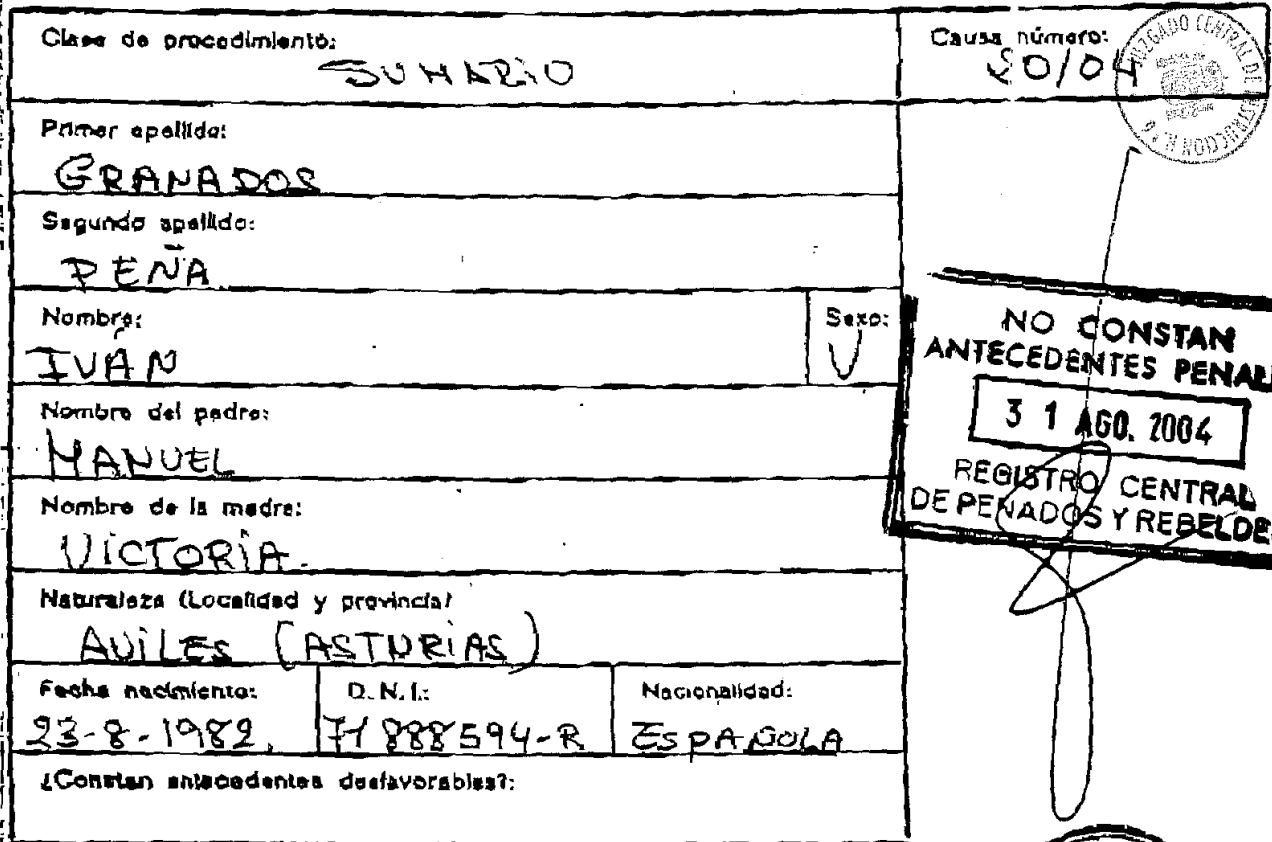 Clase de procedimiento:
SUMARIO
Causa número:
20/04
JUZGADO CENTRAL DE INSTRUCCION N.º 6
Primer apellido:
GRANADOS
Segundo apellido:
PEÑA
Nombre:
IVAN
Sexo:
V
Nombre del padre:
MANUEL
Nombre de la madre:
VICTORIA.
Naturaleza (Localidad y provincia)
AVILES (ASTURIAS)
Fecha nacimiento:
23-8-1982.
D.N.I.:
71888594-R
Nacionalidad:
ESPAÑOLA
¿Constan antecedentes desfavorables?:
NO CONSTAN
ANTECEDENTES PENAL
31 AGO. 2004
REGISTRO CENTRAL
DE PENADOS Y REBELDE